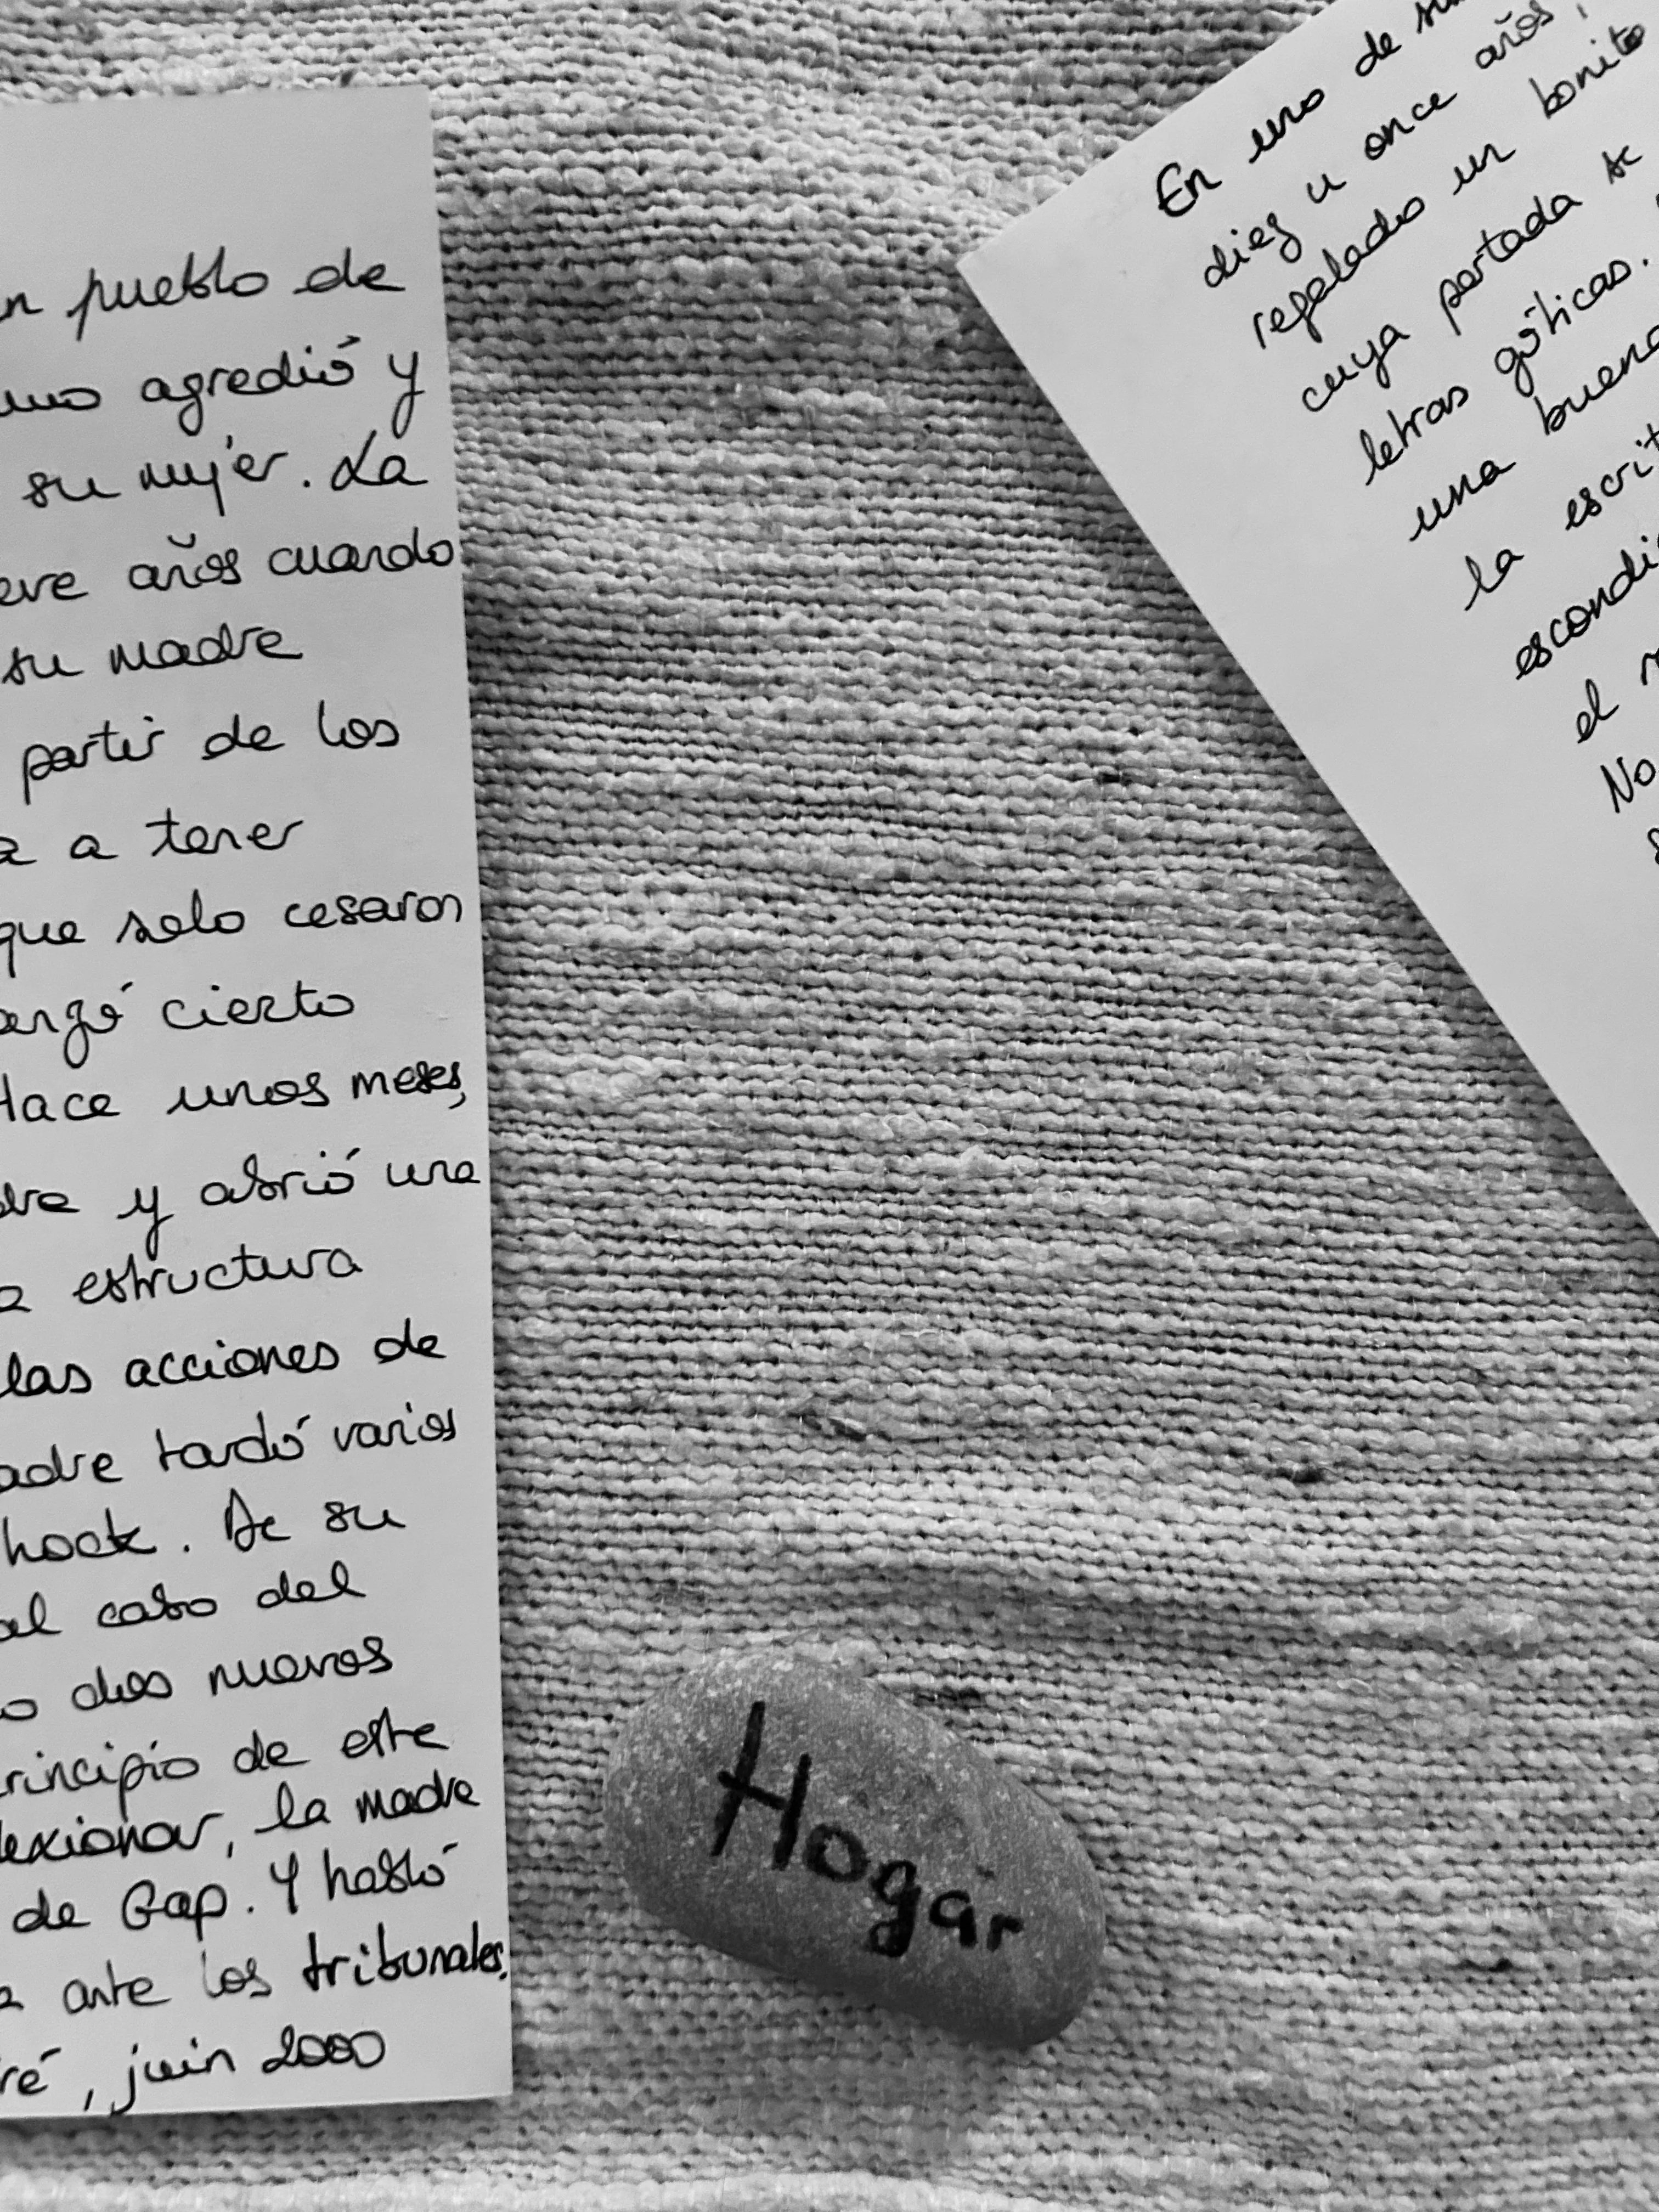 n pueblo de
uno agredió y
su mujer. La
eve años cuando
su madre
partir de los
a a tener
que solo cesaron
anzó cierto
Hace unos meses,
dre y abrió una
a estructura
las acciones de
adre tardó varios
hock. De su
al cabo del
o dos nuevos
rincipio de este
lexionar, la madre
de Gap. Y habló
a ante los tribunales.
ré, juin 2000
En uno de su
diez u once años,
regalado un bonito
cuya portada se
letras góticas.
una buena
la escrit
escondi
el
No
Hogar